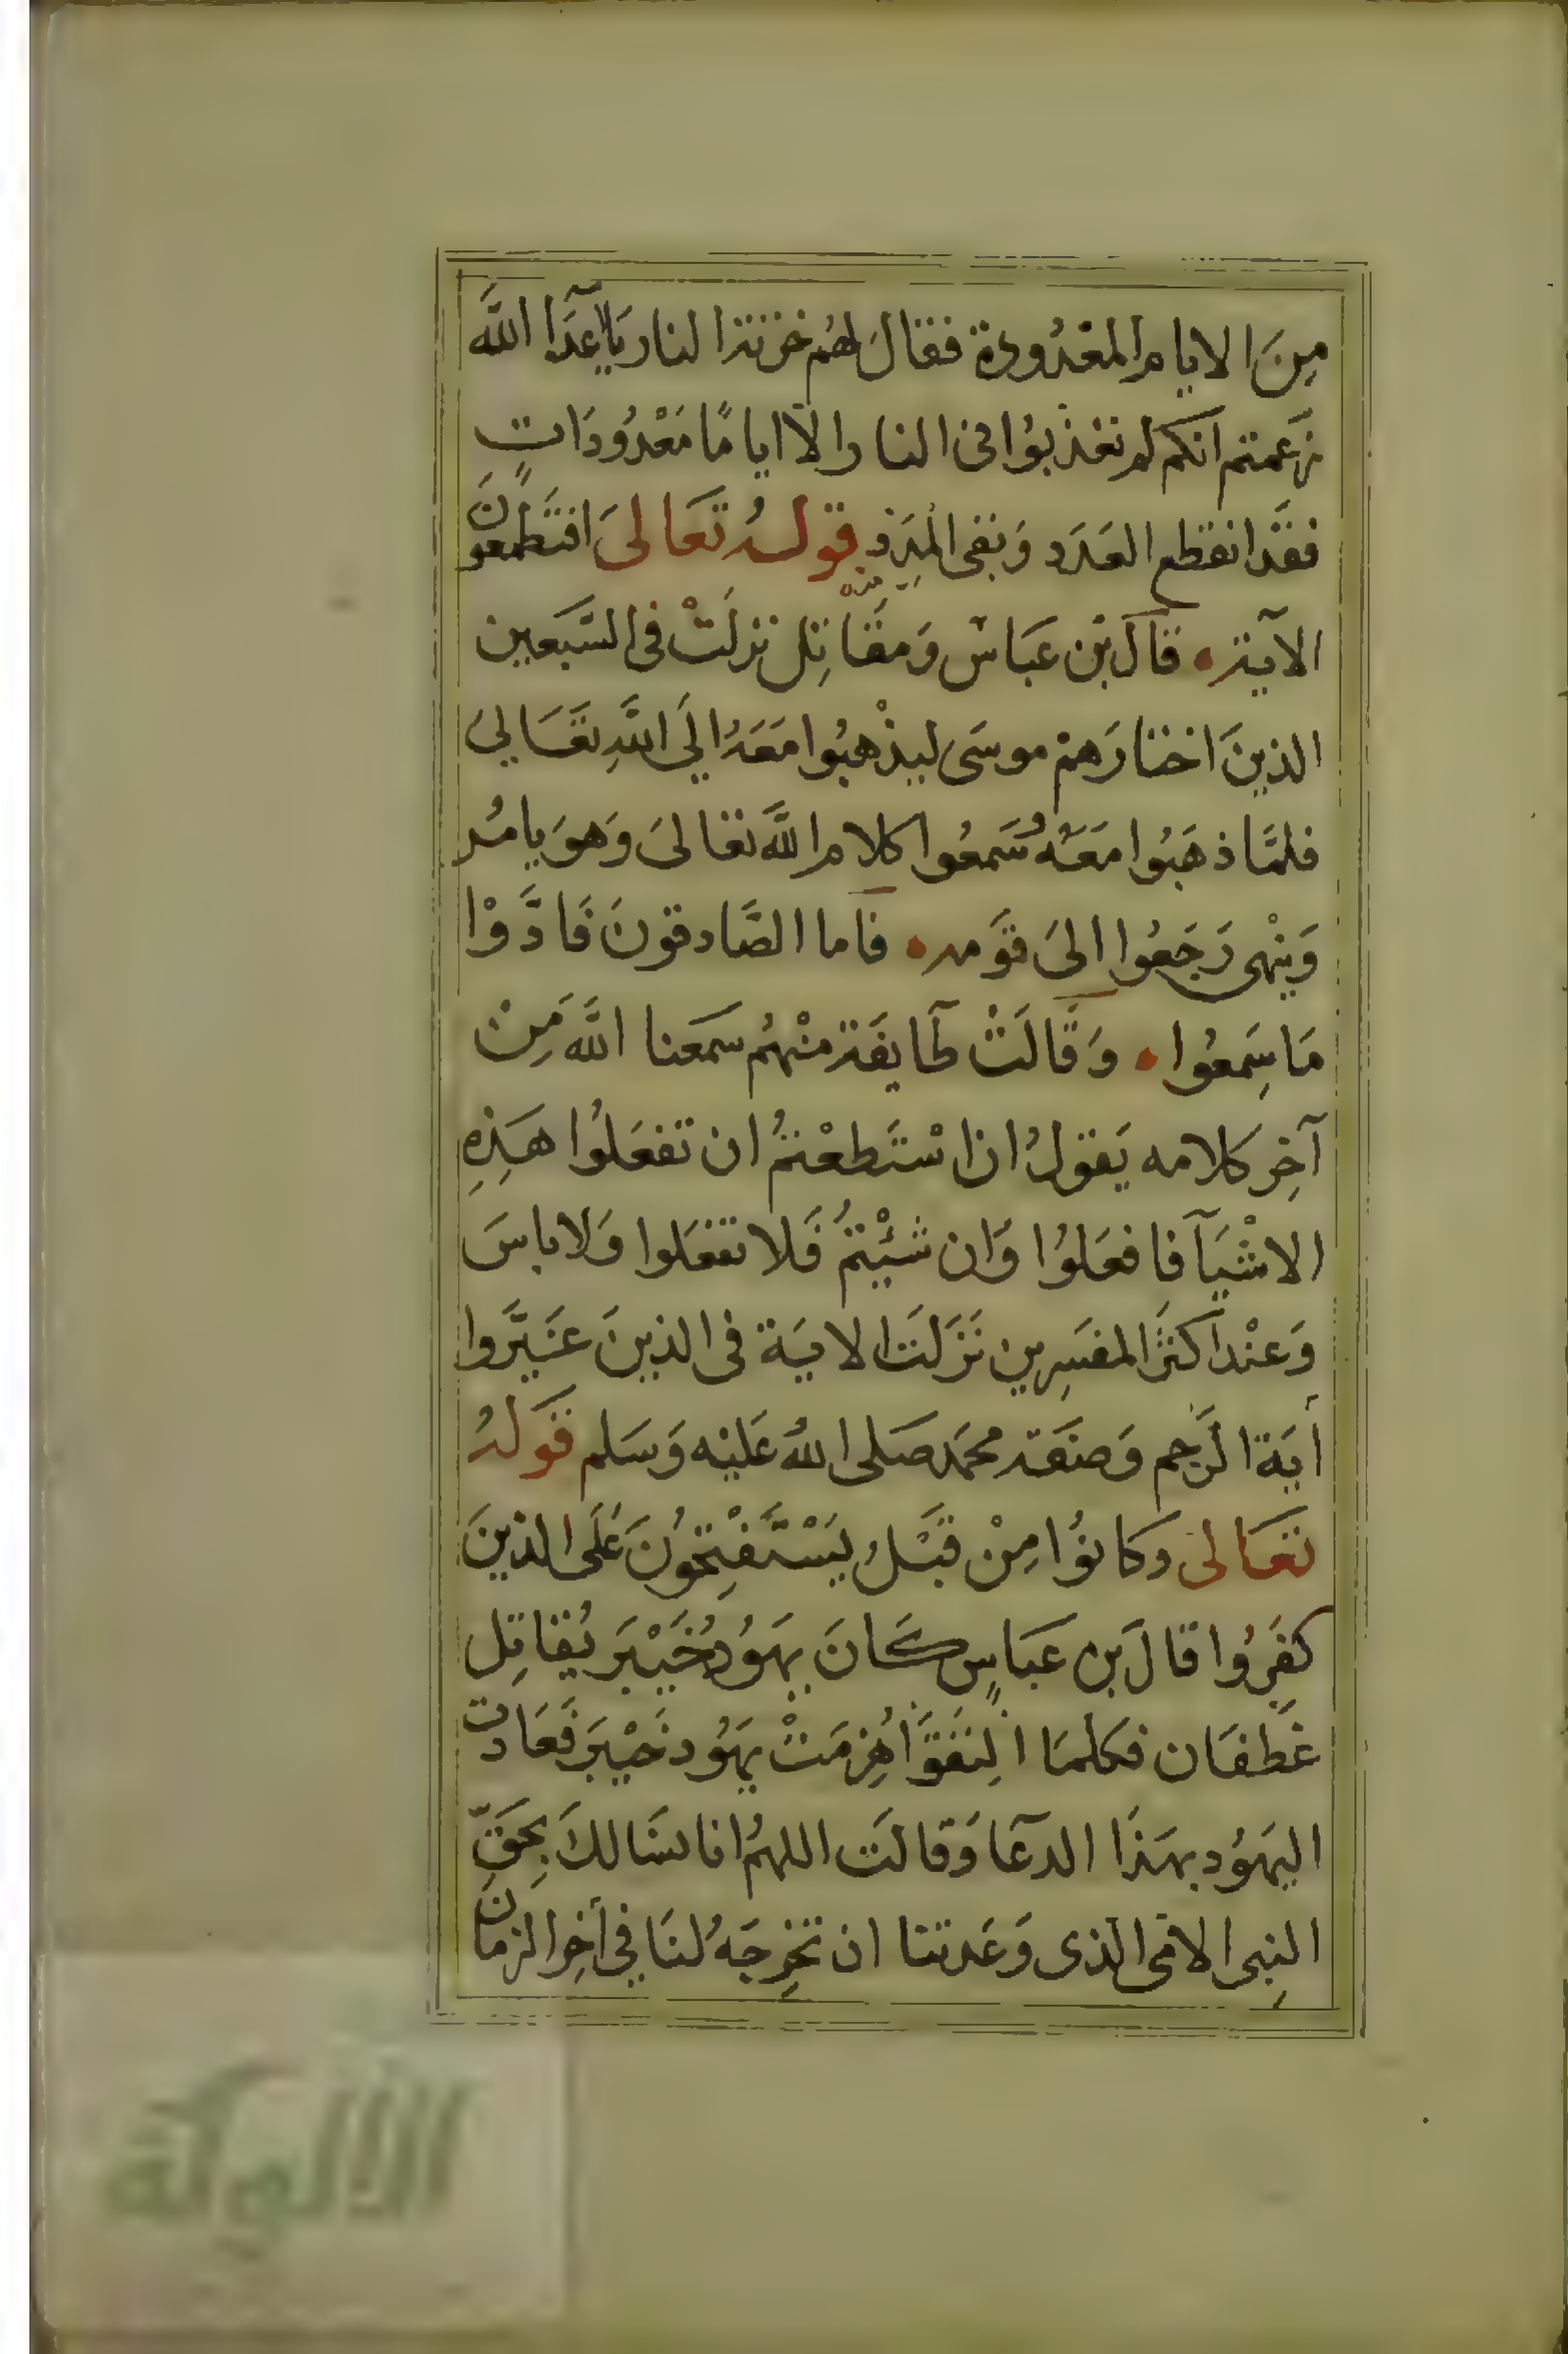 مِنَ الايام المعْدُودة فقالَ لهُم خزنة النار يَا اعدَآ اللَّه
زعمتم انكم لم تعذبوُا فى النار الا ايامًا مَعْدُودَاتٍ
فقَد انقطع العَدَد وَبقى الابد قولهُ تَعَالىَ افتَطمَعوُنَ
الآية قال بن عَباس وَمقَاتِل نزلَتْ فى السّبَعين
الذينَ اختارَهمْ موسَى ليذْهبُوا مَعَهُ الَى اللَّهِ تَعَالىَ
فلمَّا ذهَبُوا مَعَهُ سَمعُوا كلام اللَّه تعَالىَ وَهوَ يامُر
وَينْهى رَجَعُوا الىَ قَومه فاما الصَّادقونَ فَادَّوْا
مَا سَمِعُوا وَقَالَتْ طَايفَة منْهُم سَمعنا اللَّه مِنْ
آخِر كلامه يَقولُ ان اسْتَطعْتمُ ان تفعَلوُا هَذِهِ
الاشْيَآ فافعَلوُا وَان شئْتمُ فَلا تفعَلوا وَلا باسَ
وَعنْد اكثَر المفسِرين نَزَلَت الايَة فى الذينَ غيَّروا
أيَة الرَجم وَصفَة محمَد صَلى اللهُ عَليْه وَسَلم قوَلهُ
تعَالى وَكانوُا مِنْ قَبْلُ يَسْتَفْتِحُونَ عَلَى الذينَ
كفَرُوا قال بن عَباسٍ كَانَ يهَوُد خَيْبَر يُقاتِل
غَطفَان فكلمَا الْتقَوَا هُزِمَتْ يهَوُد خَيْبَر فَعَادت
اليَهوُد بهَذَا الدعَآ وَقالَت اللهُم انا نسَالكَ بِحَقِّ
النبِى الامى الذى وَعَدتنا ان تخرِجَهُ لنَا فى آخِر الزمان
الألوكة